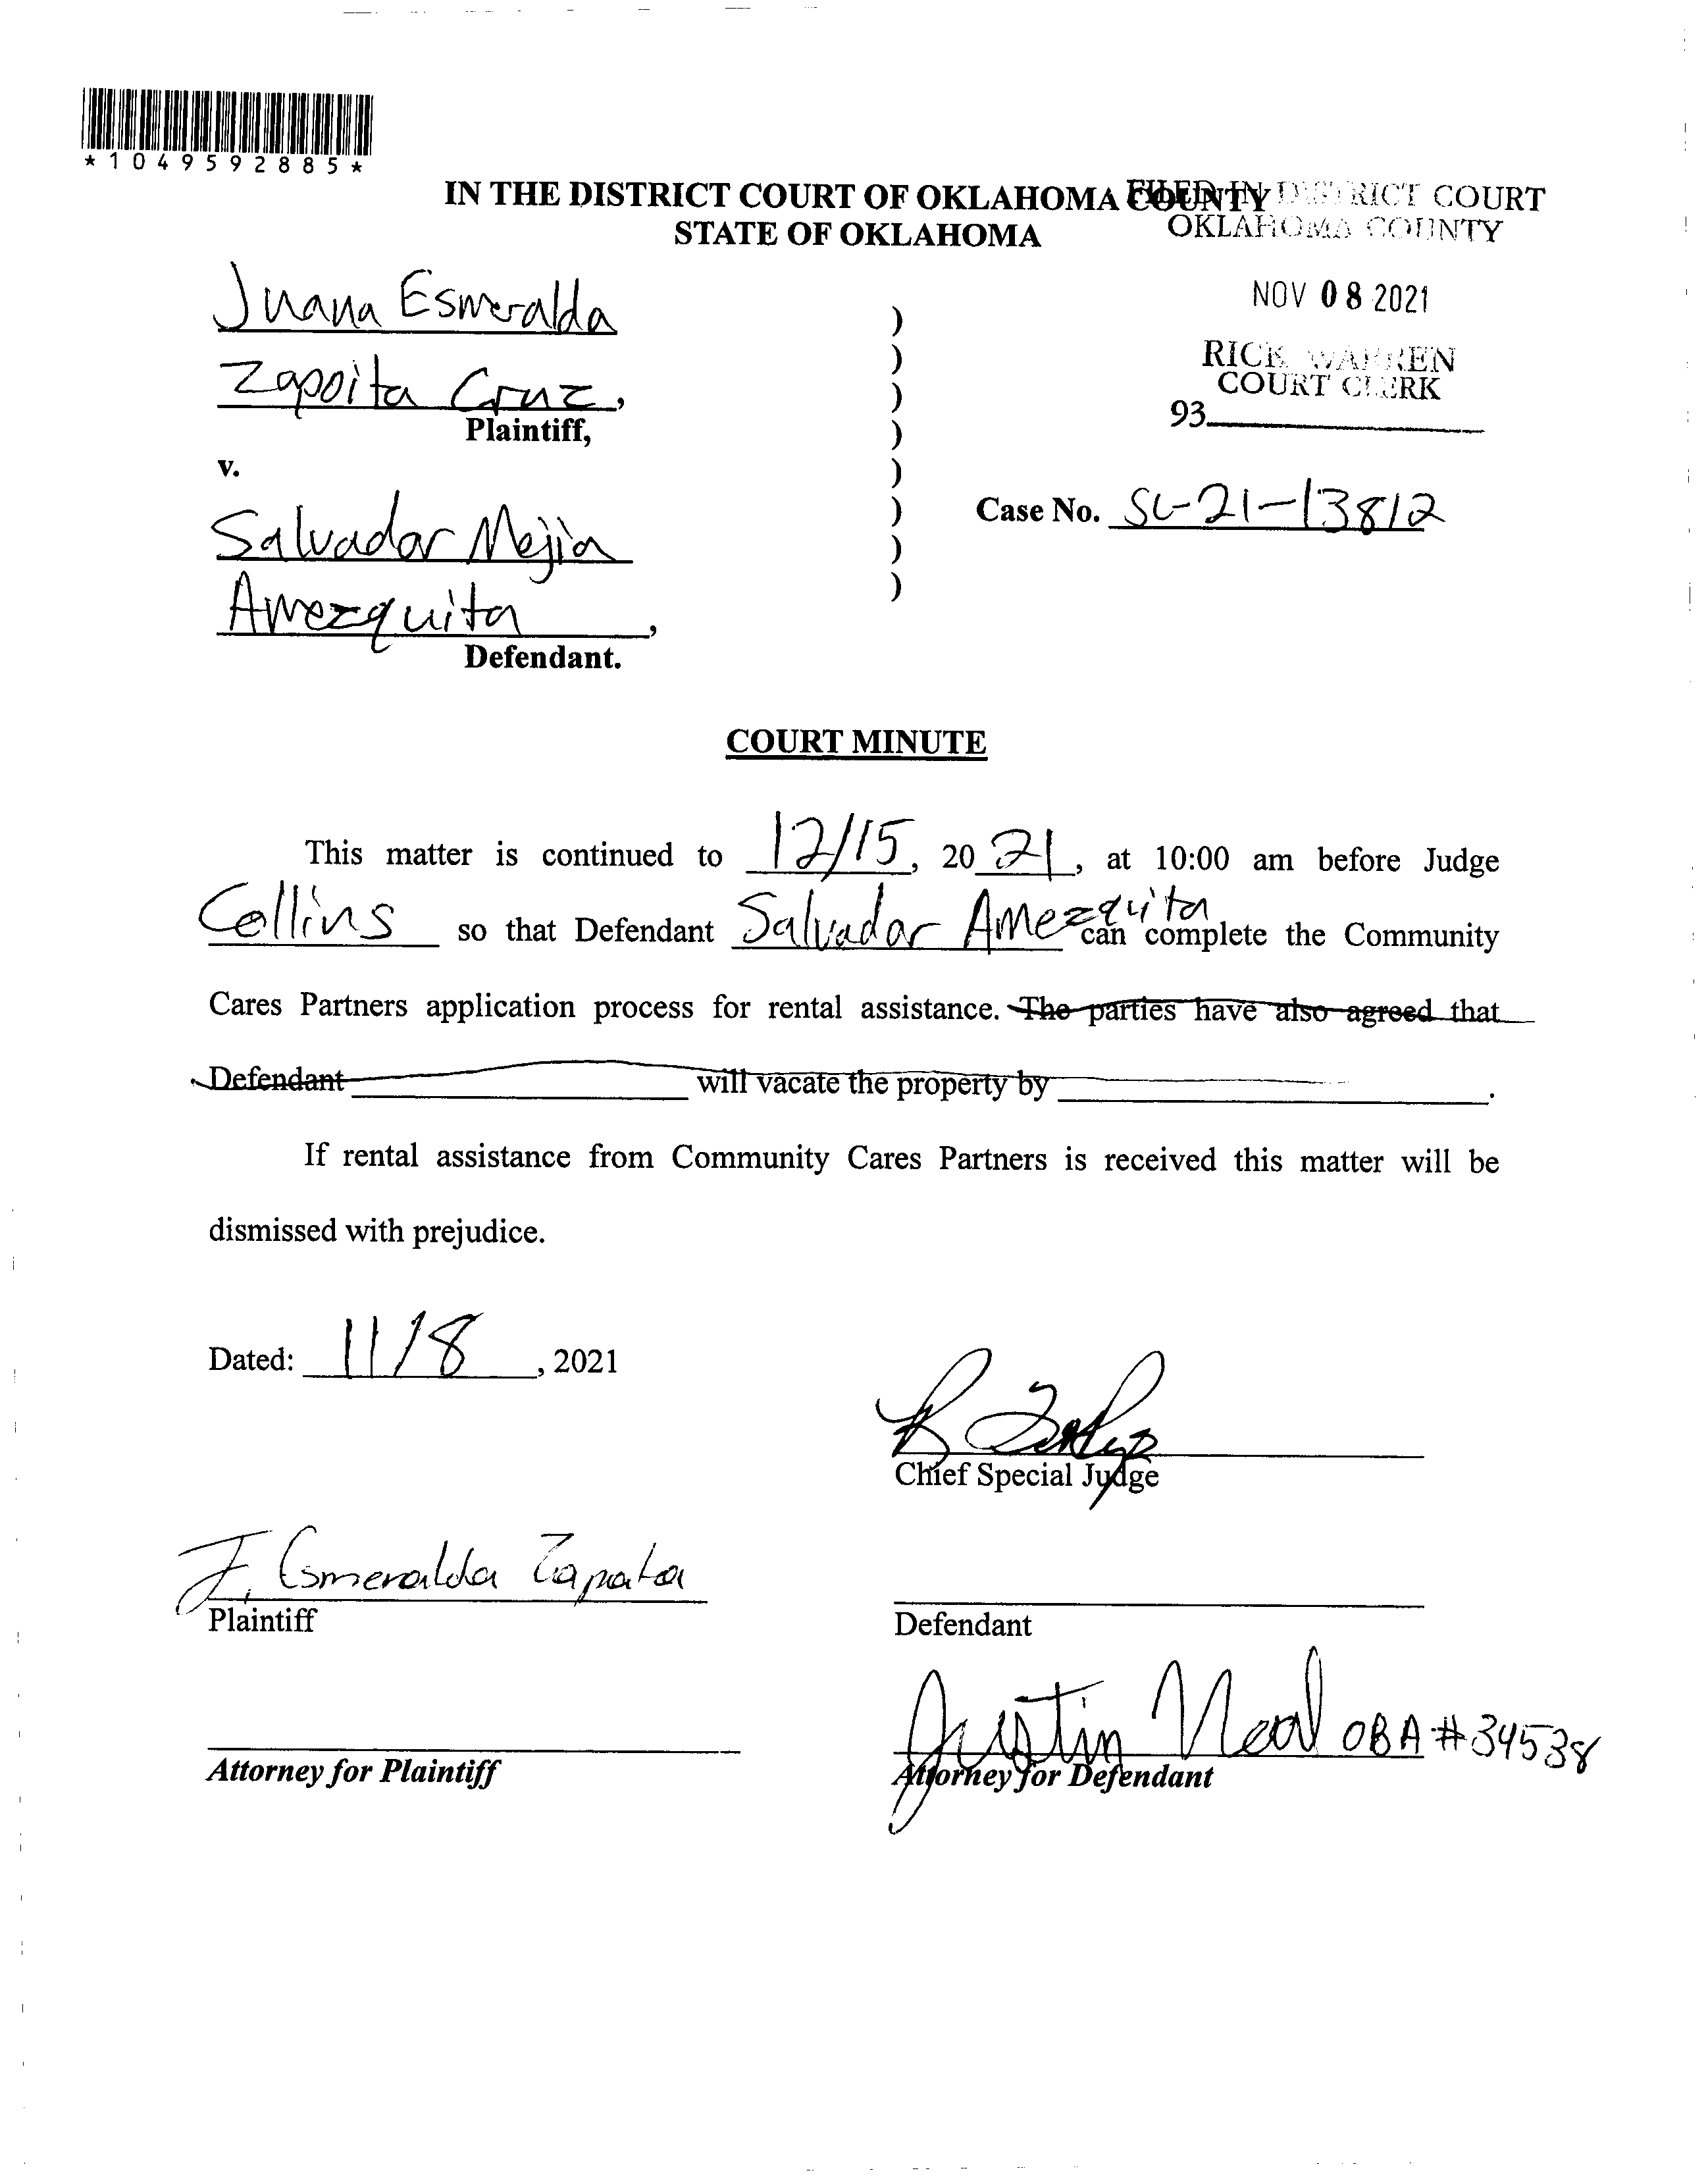 *1049592885*
IN THE DISTRICT COURT OF OKLAHOMA COUNTY
STATE OF OKLAHOMA
FILED IN DISTRICT COURT
OKLAHOMA COUNTY
NOV 08 2021
RICK WARREN
COURT CLERK
93
Juana Esmeralda
Zapoita Cruz,
Plaintiff,
v.
Salvador Mejia
Amezquita,
Defendant.
)
)
)
)
)
)
)
)
Case No. SC-21-13812
COURT MINUTE
This matter is continued to 12/15, 2021, at 10:00 am before Judge
Collins so that Defendant Salvador Amezquita can complete the Community
Cares Partners application process for rental assistance. The parties have also agreed that
Defendant will vacate the property by .
If rental assistance from Community Cares Partners is received this matter will be
dismissed with prejudice.
Dated: 11/8, 2021
Chief Special Judge
J. Esmeralda Zapata
Plaintiff
Defendant
Justin Neal OBA #34538
Attorney for Plaintiff
Attorney for Defendant